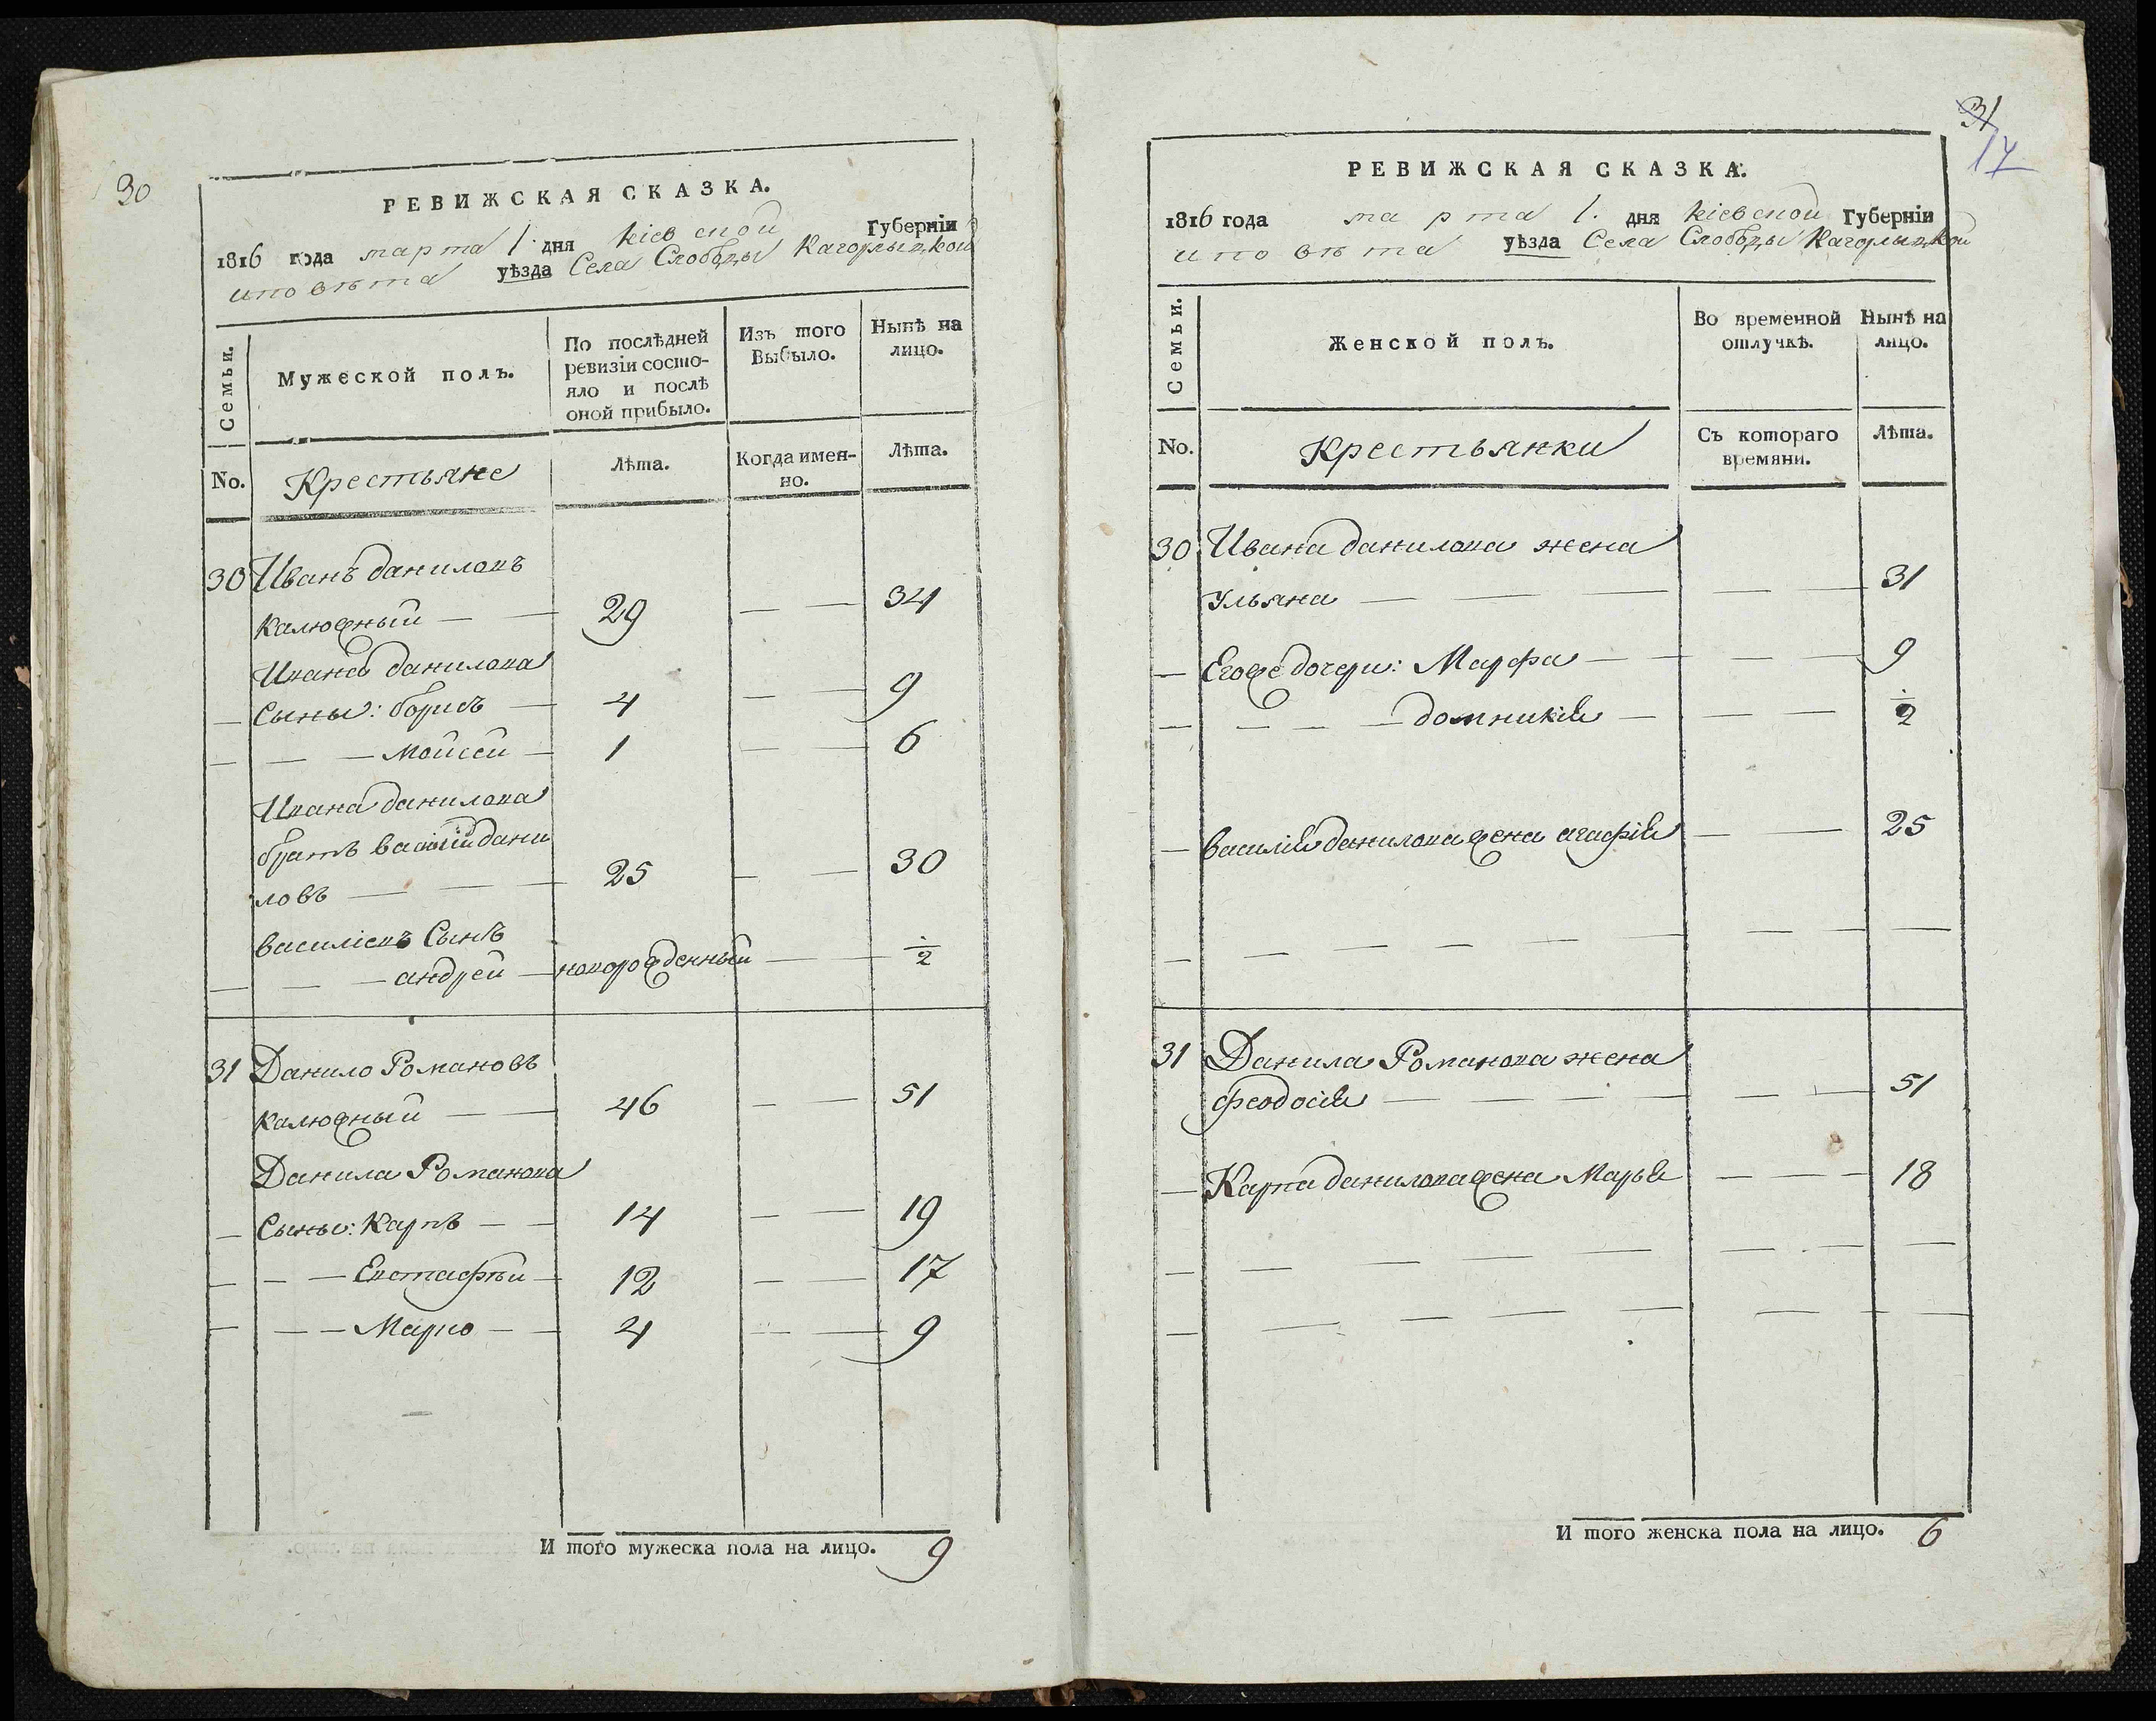 30
РЕВИЖСКАЯ СКАЗКА.
1816 года марта 1. дня Кіевской Губерніи
и повѣта уѣзда Села Слободы Кагорлыцкой
Семьи.
Мужеской полъ.
По послѣдней ревизіи состо-
яло и послѣ
оной прибыло.
Изъ того
Выбыло.
Нынѣ на
лицо.
No.
Крестьяне
Лѣта.
Когда имен-
но.
Лѣта.
30 Иванъ даниловъ
калюжный — — 29 — — 34
Ивана данилова
— Сыны: борисъ — 4 — — 9
— — — Мойсей — 1 — — 6
Ивана данилова
братъ василій дани
ловъ — — — 25 — — 30
василіевъ Сынъ
— — — андрей — новорожденный — — ½
31 Данило Романовъ
калюжный — — 46 — — 51
Данила Романова
— Сыны: Карпъ — — 14 — — 19
— — — Евстафѣй — 12 — — 17
— — — Марко — — 4 — — 9
И того мужеска пола на лицо. 9
31
17
РЕВИЖСКАЯ СКАЗКА.
1816 года марта 1. дня Кіевской Губерніи
и повѣта уѣзда Села Слободы Кагорлыцкой
Семьи.
Женской полъ.
Во временной
отлучкѣ.
Нынѣ на
лицо.
No.
Крестьянки
Съ котораго
времяни.
Лѣта.
30 Ивана данилова жена
Ульяна — — — — — 31
— Егоже дочери: Марфа — — — — 9
— — — — — домникія — — — ½
— василія данилова жена агафія — — 25
— — — — — — — — —
31 Данила Романова жена
феодосія — — — — — — 51
— Карпа данилова жена Марья — — — 18
— — — — — — — —
— — — — — — — —
И того женска пола на лицо. 6